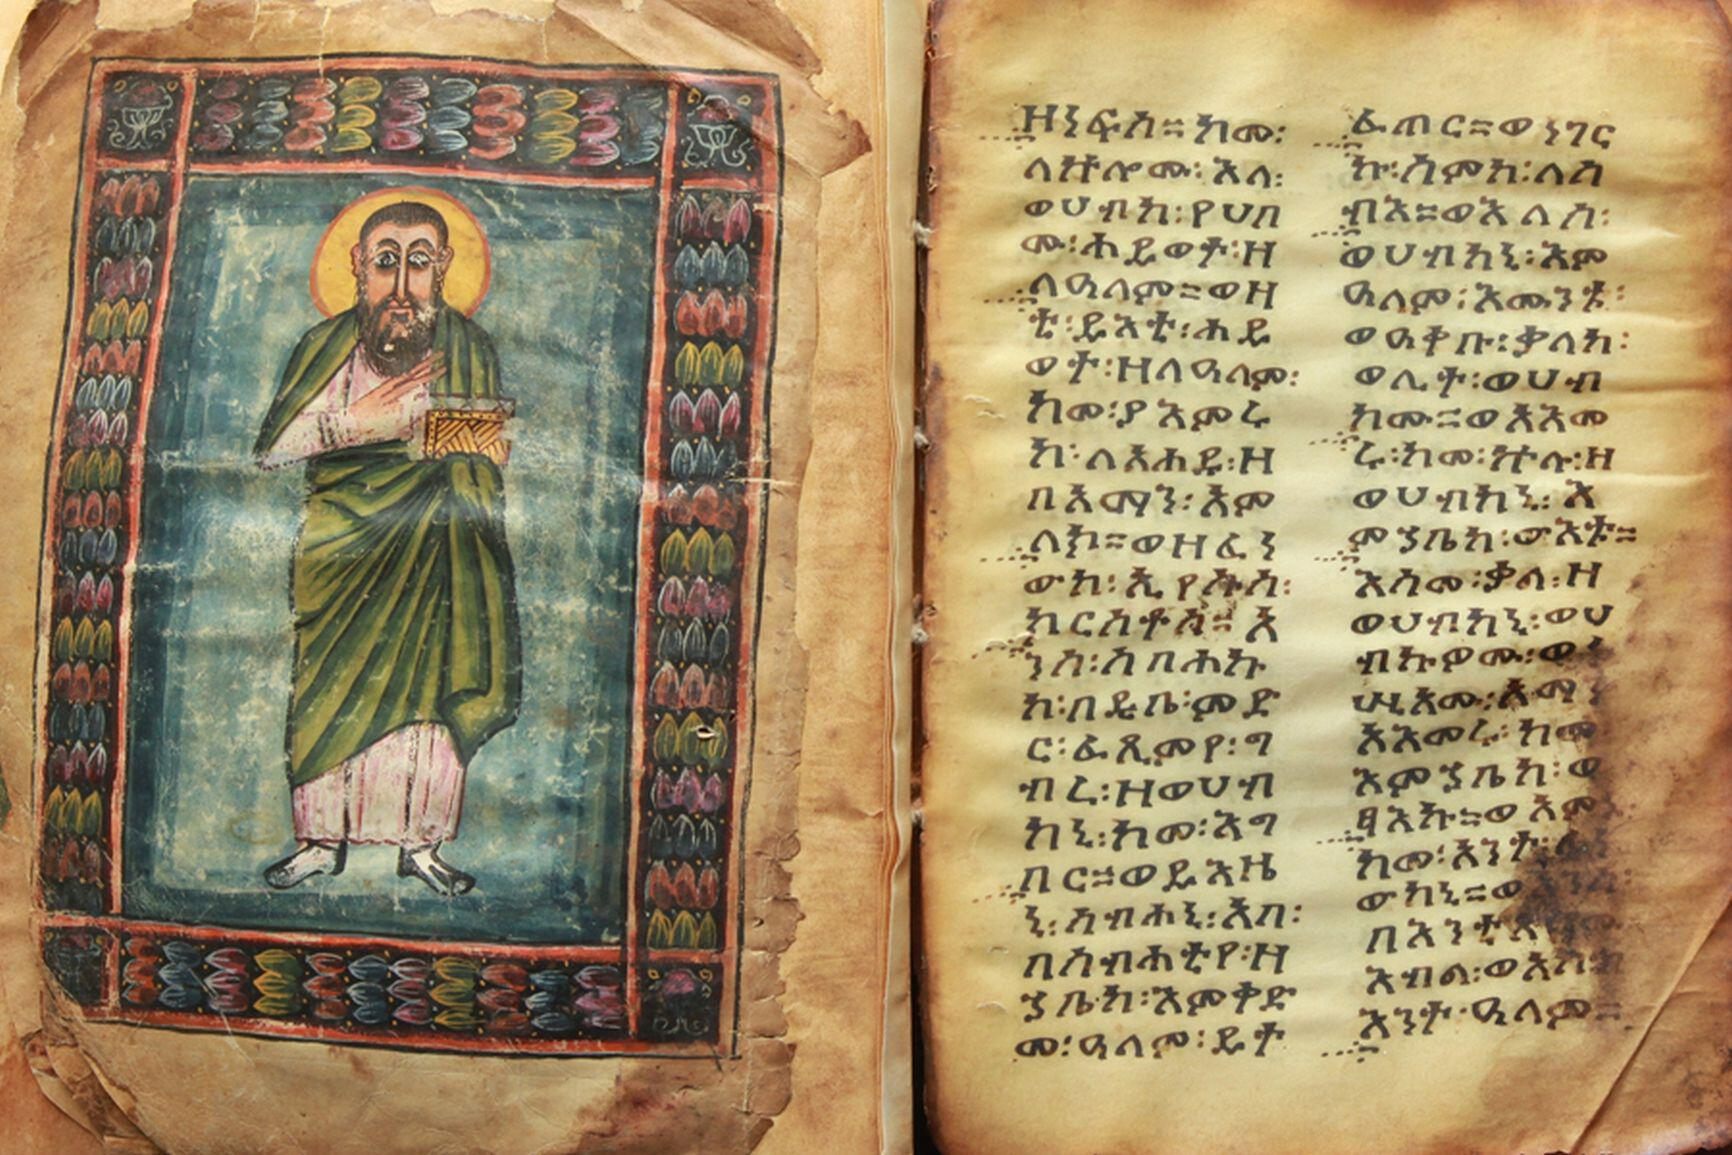 ዘነፍስ። ከመ፡
ለኵሎሙ፡ እለ፡
ወሀብከ፡ የሀበ
ሙ፡ ሕይወተ፡ ዘ
ለዓለም። ወዛ
ቲ፡ ይእቲ፡ ሕይ
ወት፡ ዘለዓለም፡
ከመ፡ ያእምሩ
ከ፡ ለአሐዱ፡ ዘ
በአማን፡ አም
ላክ። ወዘፈነ
ውከ፡ ኢየሱስ፡
ክርስቶስ። አ
ንሰ፡ ሰባሕኩ
ከ፡ በዲበ፡ ምድ
ር፡ ፈጺምየ፡ ግ
ብረ፡ ዘወሀብ
ከኒ፡ ከመ፡ እግ
በር። ወይእዜ
ኒ፡ ሰብሐኒ፡ አባ፡
በስብሐቲየ፡ ዘ
ኀቤከ፡ እምቅድ
መ፡ ዓለም፡ ይት
ፈጠር። ወነገር
ኩ፡ ስምከ፡ ለሰ
ብእ። ወእለሰ፡
ወሀብከኒ፡ እም
ዓለም፡ እሙንቱ፡
ወዓቀቡ፡ ቃለከ፡
ወሊተ፡ ወሀብ
ከሙ። ወአእመ
ሩ፡ ከመ፡ ኵሉ፡ ዘ
ወሀብከኒ፡ እ
ምኀቤከ፡ ውእቱ።
እስመ፡ ቃለ፡ ዘ
ወሀብከኒ፡ ወሀ
ብኩዎሙ፡ ወ
አእመሩ፡ ከመ
እምኀቤከ፡ ወ
ፃእኩ። ወአም
ከመ፡ አንተ፡
ውከኒ። ወ
በእንቲአ
እብል፡ ወአኮ
እንተ፡ ዓለም።